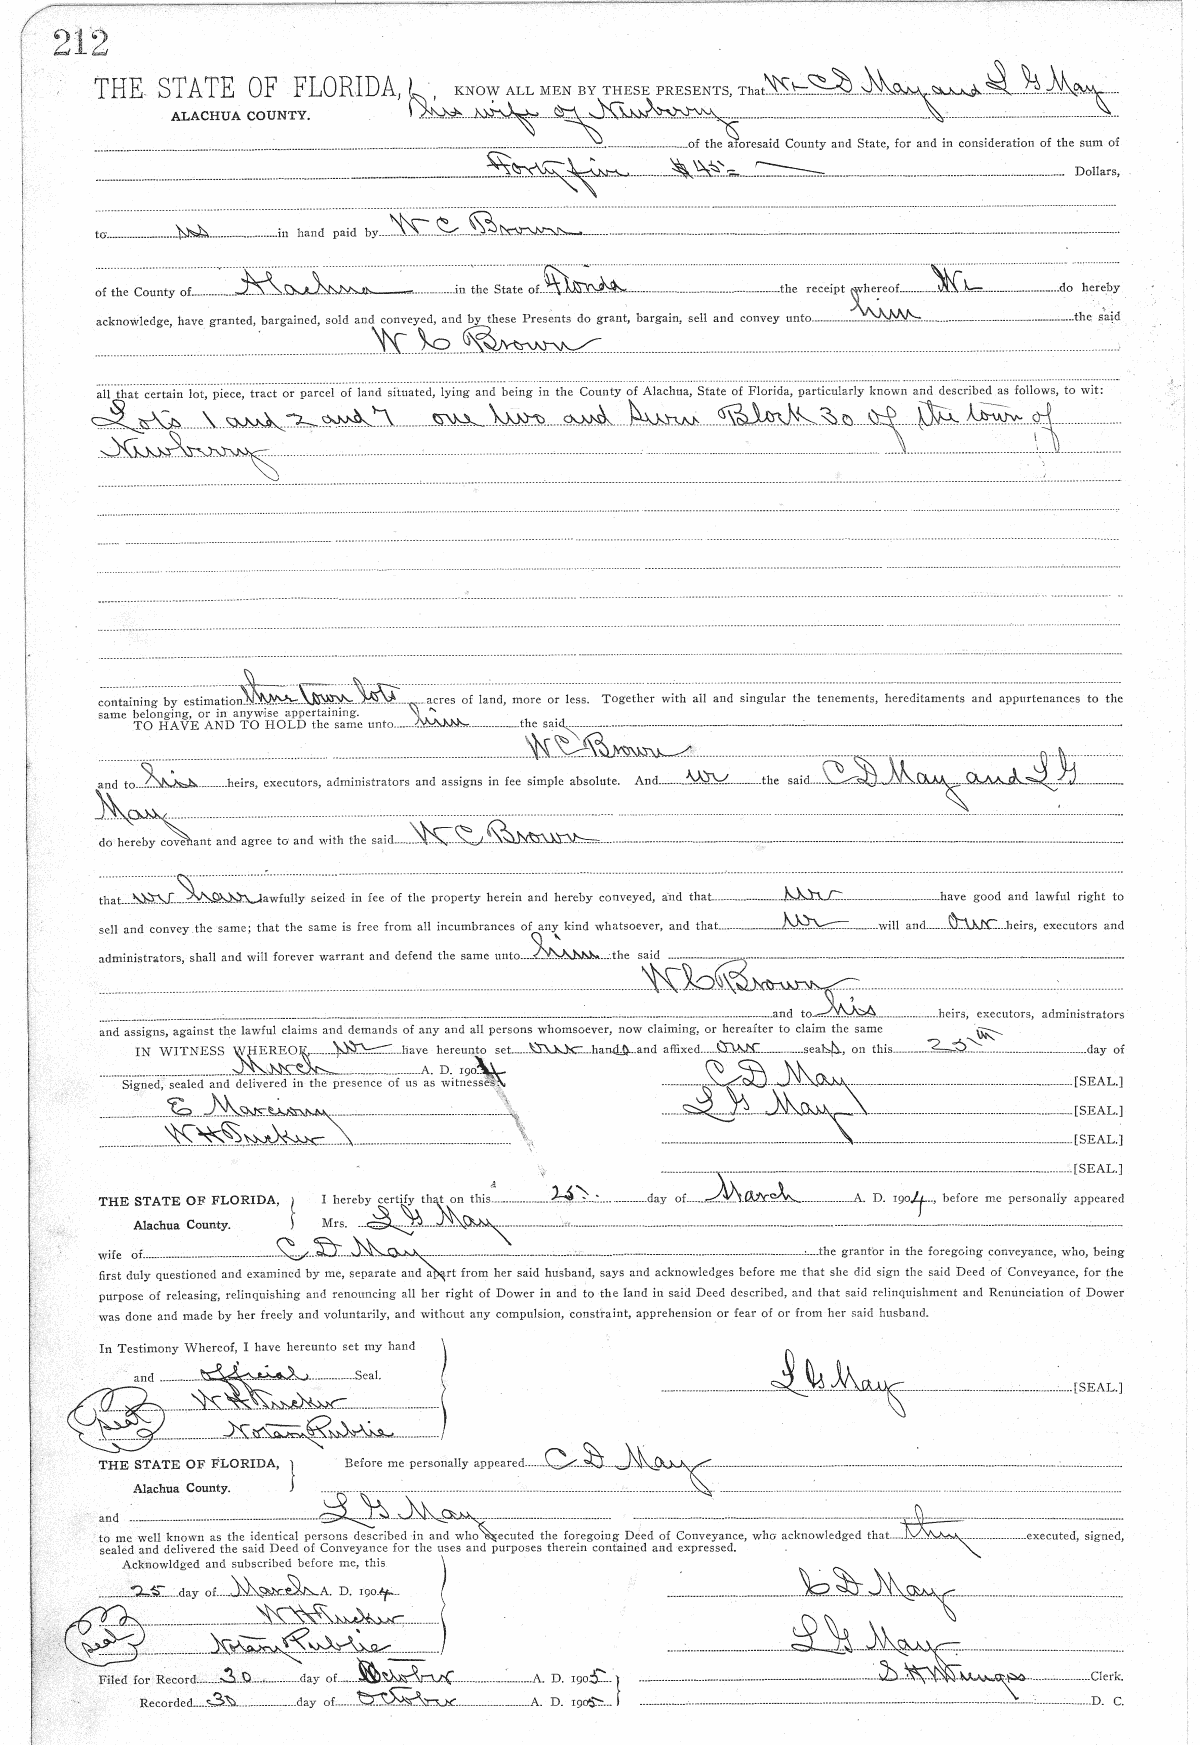 212
THE STATE OF FLORIDA, KNOW ALL MEN BY THESE PRESENTS, That We C D May and L G May
ALACHUA COUNTY. his wife of Newberry
of the aforesaid County and State, for and in consideration of the sum of
Forty five $45= Dollars,
to us in hand paid by W C Brown
of the County of Alachua in the State of Florida the receipt whereof We do hereby
acknowledge, have granted, bargained, sold and conveyed, and by these Presents do grant, bargain, sell and convey unto him the said
W C Brown
all that certain lot, piece, tract or parcel of land situated, lying and being in the County of Alachua, State of Florida, particularly known and described as follows, to wit:
Lots 1 and 2 and 7 one two and seven Block 30 of the town of
Newberry
containing by estimation three town lots acres of land, more or less. Together with all and singular the tenements, hereditaments and appurtenances to the
same belonging, or in anywise appertaining.
TO HAVE AND TO HOLD the same unto him the said
W C Brown
and to his heirs, executors, administrators and assigns in fee simple absolute. And we the said C D May and L G
May
do hereby covenant and agree to and with the said W C Brown
that we have lawfully seized in fee of the property herein and hereby conveyed, and that we have good and lawful right to
sell and convey the same; that the same is free from all incumbrances of any kind whatsoever, and that we will and our heirs, executors and
administrators, shall and will forever warrant and defend the same unto him the said
W C Brown
and to his heirs, executors, administrators
and assigns, against the lawful claims and demands of any and all persons whomsoever, now claiming, or hereafter to claim the same
IN WITNESS WHEREOF, we have hereunto set our hands and affixed our seals, on this 25th day of
March A. D. 1904
Signed, sealed and delivered in the presence of us as witnesses: C D May [SEAL.]
E L G May [SEAL.]
W H Tucker [SEAL.]
[SEAL.]
THE STATE OF FLORIDA, I hereby certify that on this 25 day of March A. D. 1904, before me personally appeared
Alachua County. Mrs. L G May
wife of C D May the grantor in the foregoing conveyance, who, being
first duly questioned and examined by me, separate and apart from her said husband, says and acknowledges before me that she did sign the said Deed of Conveyance, for the
purpose of releasing, relinquishing and renouncing all her right of Dower in and to the land in said Deed described, and that said relinquishment and Renunciation of Dower
was done and made by her freely and voluntarily, and without any compulsion, constraint, apprehension or fear of or from her said husband.
In Testimony Whereof, I have hereunto set my hand
and official Seal. L G May [SEAL.]
W H Tucker
seal Notary Public
THE STATE OF FLORIDA, Before me personally appeared C D May
Alachua County.
and L G May
to me well known as the identical persons described in and who executed the foregoing Deed of Conveyance, who acknowledged that they executed, signed,
sealed and delivered the said Deed of Conveyance for the uses and purposes therein contained and expressed.
Acknowldged and subscribed before me, this
25 day of March A. D. 1904 C D May
W H Tucker
seal Notary Public L G May
Filed for Record 30 day of October A. D. 1905 S H Wienges Clerk.
Recorded 30 day of October A. D. 1905 D. C.